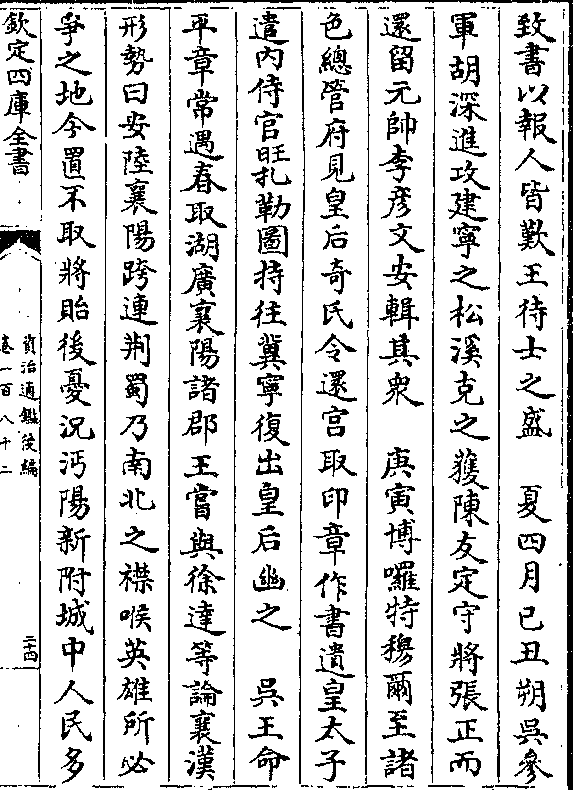 致書以報人皆歎王待士之盛　夏四月己丑朔吳參
軍胡深進攻建寧之松溪克之獲陳友定守將張正而
還留元帥李彦文安輯其衆　庚寅博囉特穆爾至諸
色總管府見皇后奇氏令還宫取印章作書遺皇太子
遣内侍官旺扎勒圖持往冀寧復出皇后幽之　吳王命
平章常遇春取湖廣襄陽諸郡王嘗與徐達等論襄漢
形勢曰安陸襄陽跨連荆蜀乃南北之襟喉英雄所必
爭之地今置不取將貽後憂況沔陽新附城中人民多
欽定四庫全書
資治通鑑後編
卷一百八十二
二十四